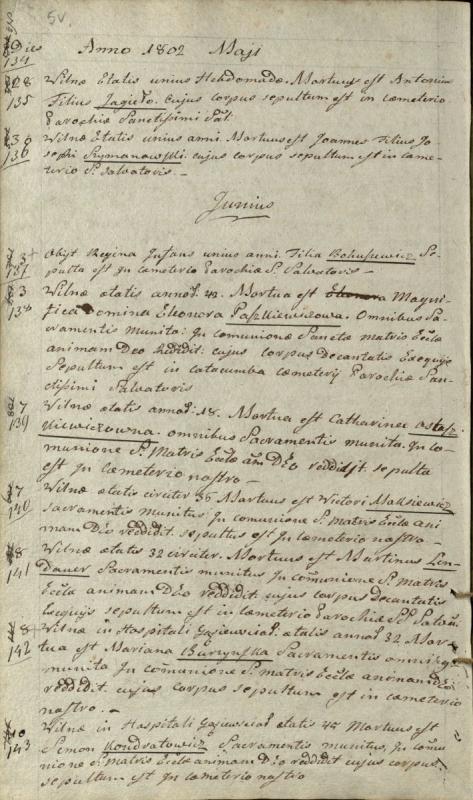 5v.
Dies Anno 1802 Maji
134
28 Wilnæ Etatis unius Hebdomadæ. Mortuus est Antonius
135 Filius Jagieło. cujus corpus sepultum est in cœmeterio
Parochiæ Sanctissimi Salt:
30 Wilnæ Etatis unius anni. Mortuus est Joannes Filius Jo
136 sephi Szymanowski. cujus corpus sepultum est in cæme-
terio St. Salvatoris. –
Junius
3 Obijt Regina Infans unius anni. Filia Bohusewicz Se-
137 pulta est In cæmeterio Parochiæ S. Salvatoris –
3 Wilnæ ætatis annor: 42. Mortua est Magni-
138 fica Domina Eleonora Paszkiewiczowa. Omnibus Sa-
cramentis munita: In comunionæ Sanctæ matris Ecclæ
animam Deo Reddidit: cujus corpus Decantatis Exequijs
Sepultum est in catacumba cæmeterij Parochiæ San-
ctissimi Salvatoris
7 Wilnæ ætatis annor: 18. Mortua est Catharinea Ostasz
139 kiewiczowna. omnibus Sacramentis munita. In co-
munione St. Matris Ecclæ am Deo reddidit. sepulta
est in cæmeterio nostro –
7 Wilnæ ætatis circiter 36 Mortuus est Victori Maksiewicz
140 sacramentis munitus: In comunione St. matris Ecclæ ani
mam Deo reddidit. sepultus est in cæmeterio nostro –
8 Wilnæ ætatis 32 circiter. Mortuus est Martinus Len-
141 daner Sacramentis munitus In comunione St. Matris
Ecclæ animam Deo reddidit. cujus corpus Decantatis
Exequijs sepultum est in cæmeterio Parochiæ St. Salva:
8 Wilnæ in Hospitali ætatis annor: 32 Mor-
142 tua est Mariana Sacramentis omnibus
munita In comunione St. matris Ecclæ animam Deo
reddidit. cujus corpus sepultum est in cæmeterio
nostro. –
10 Wilnæ in Hospitali ætatis 42 Mortuus est
143 Simon Kondratowicz Sacramentis munitus, In comu
nione St. matris Ecclæ animam Deo reddidit cujus corpus
sepultum est In cæmeterio nostro